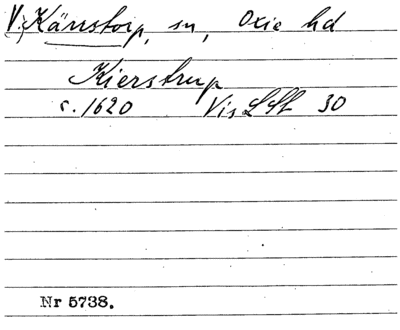 V. Kärrstorp, sn, Oxie hd
Kierstrup
c. 1620 Vis LSt 30
Nr 5738.